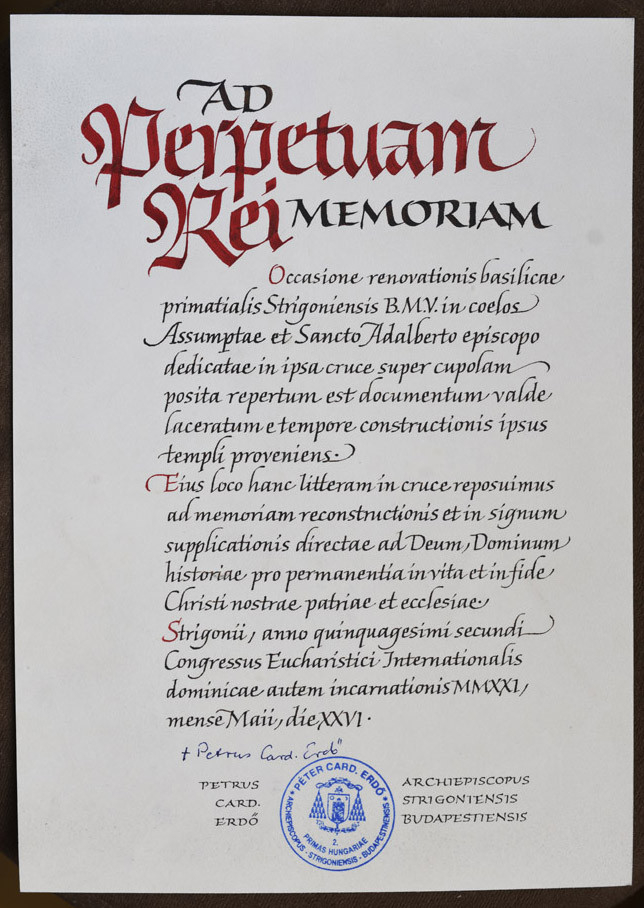 AD
Perpetuam
Rei MEMORIAM
Occasione renovationis basilicae
primatialis Strigoniensis B.M.V. in coelos
Assumptae et Sancto Adalberto episcopo
dedicatae in ipsa cruce super cupolam
posita repertum est documentum valde
laceratum e tempore constructionis ipsus
templi proveniens.
Eius loco hanc litteram in cruce reposuimus
ad memoriam reconstructionis et in signum
supplicationis directae ad Deum, Dominum
historiae pro permanentia in vita et in fide
Christi nostrae patriae et ecclesiae.
Strigonii, anno quinquagesimi secundi
Congressus Eucharistici Internationalis
dominicae autem incarnationis MMXXI,
mense Maii, die XXVI.
+ Petrus Card. Erdő
PETRUS
CARD.
ERDŐ
* PÉTER CARD. ERDŐ *
ARCHIEPISCOPUS - STRIGONIENSIS - BUDAPESTINENSIS
2.
PRIMAS HUNGARIAE
ARCHIEPISCOPUS
STRIGONIENSIS
BUDAPESTIENSIS